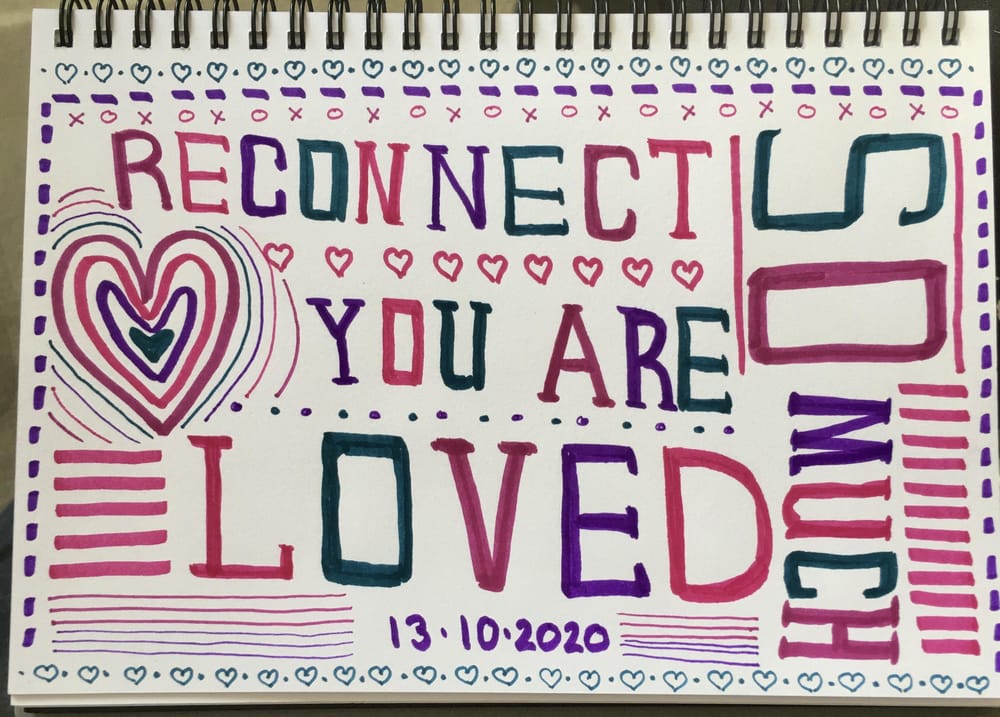 RECONNECT
YOU ARE
LOVED
SO
MUCH
13.10.2020